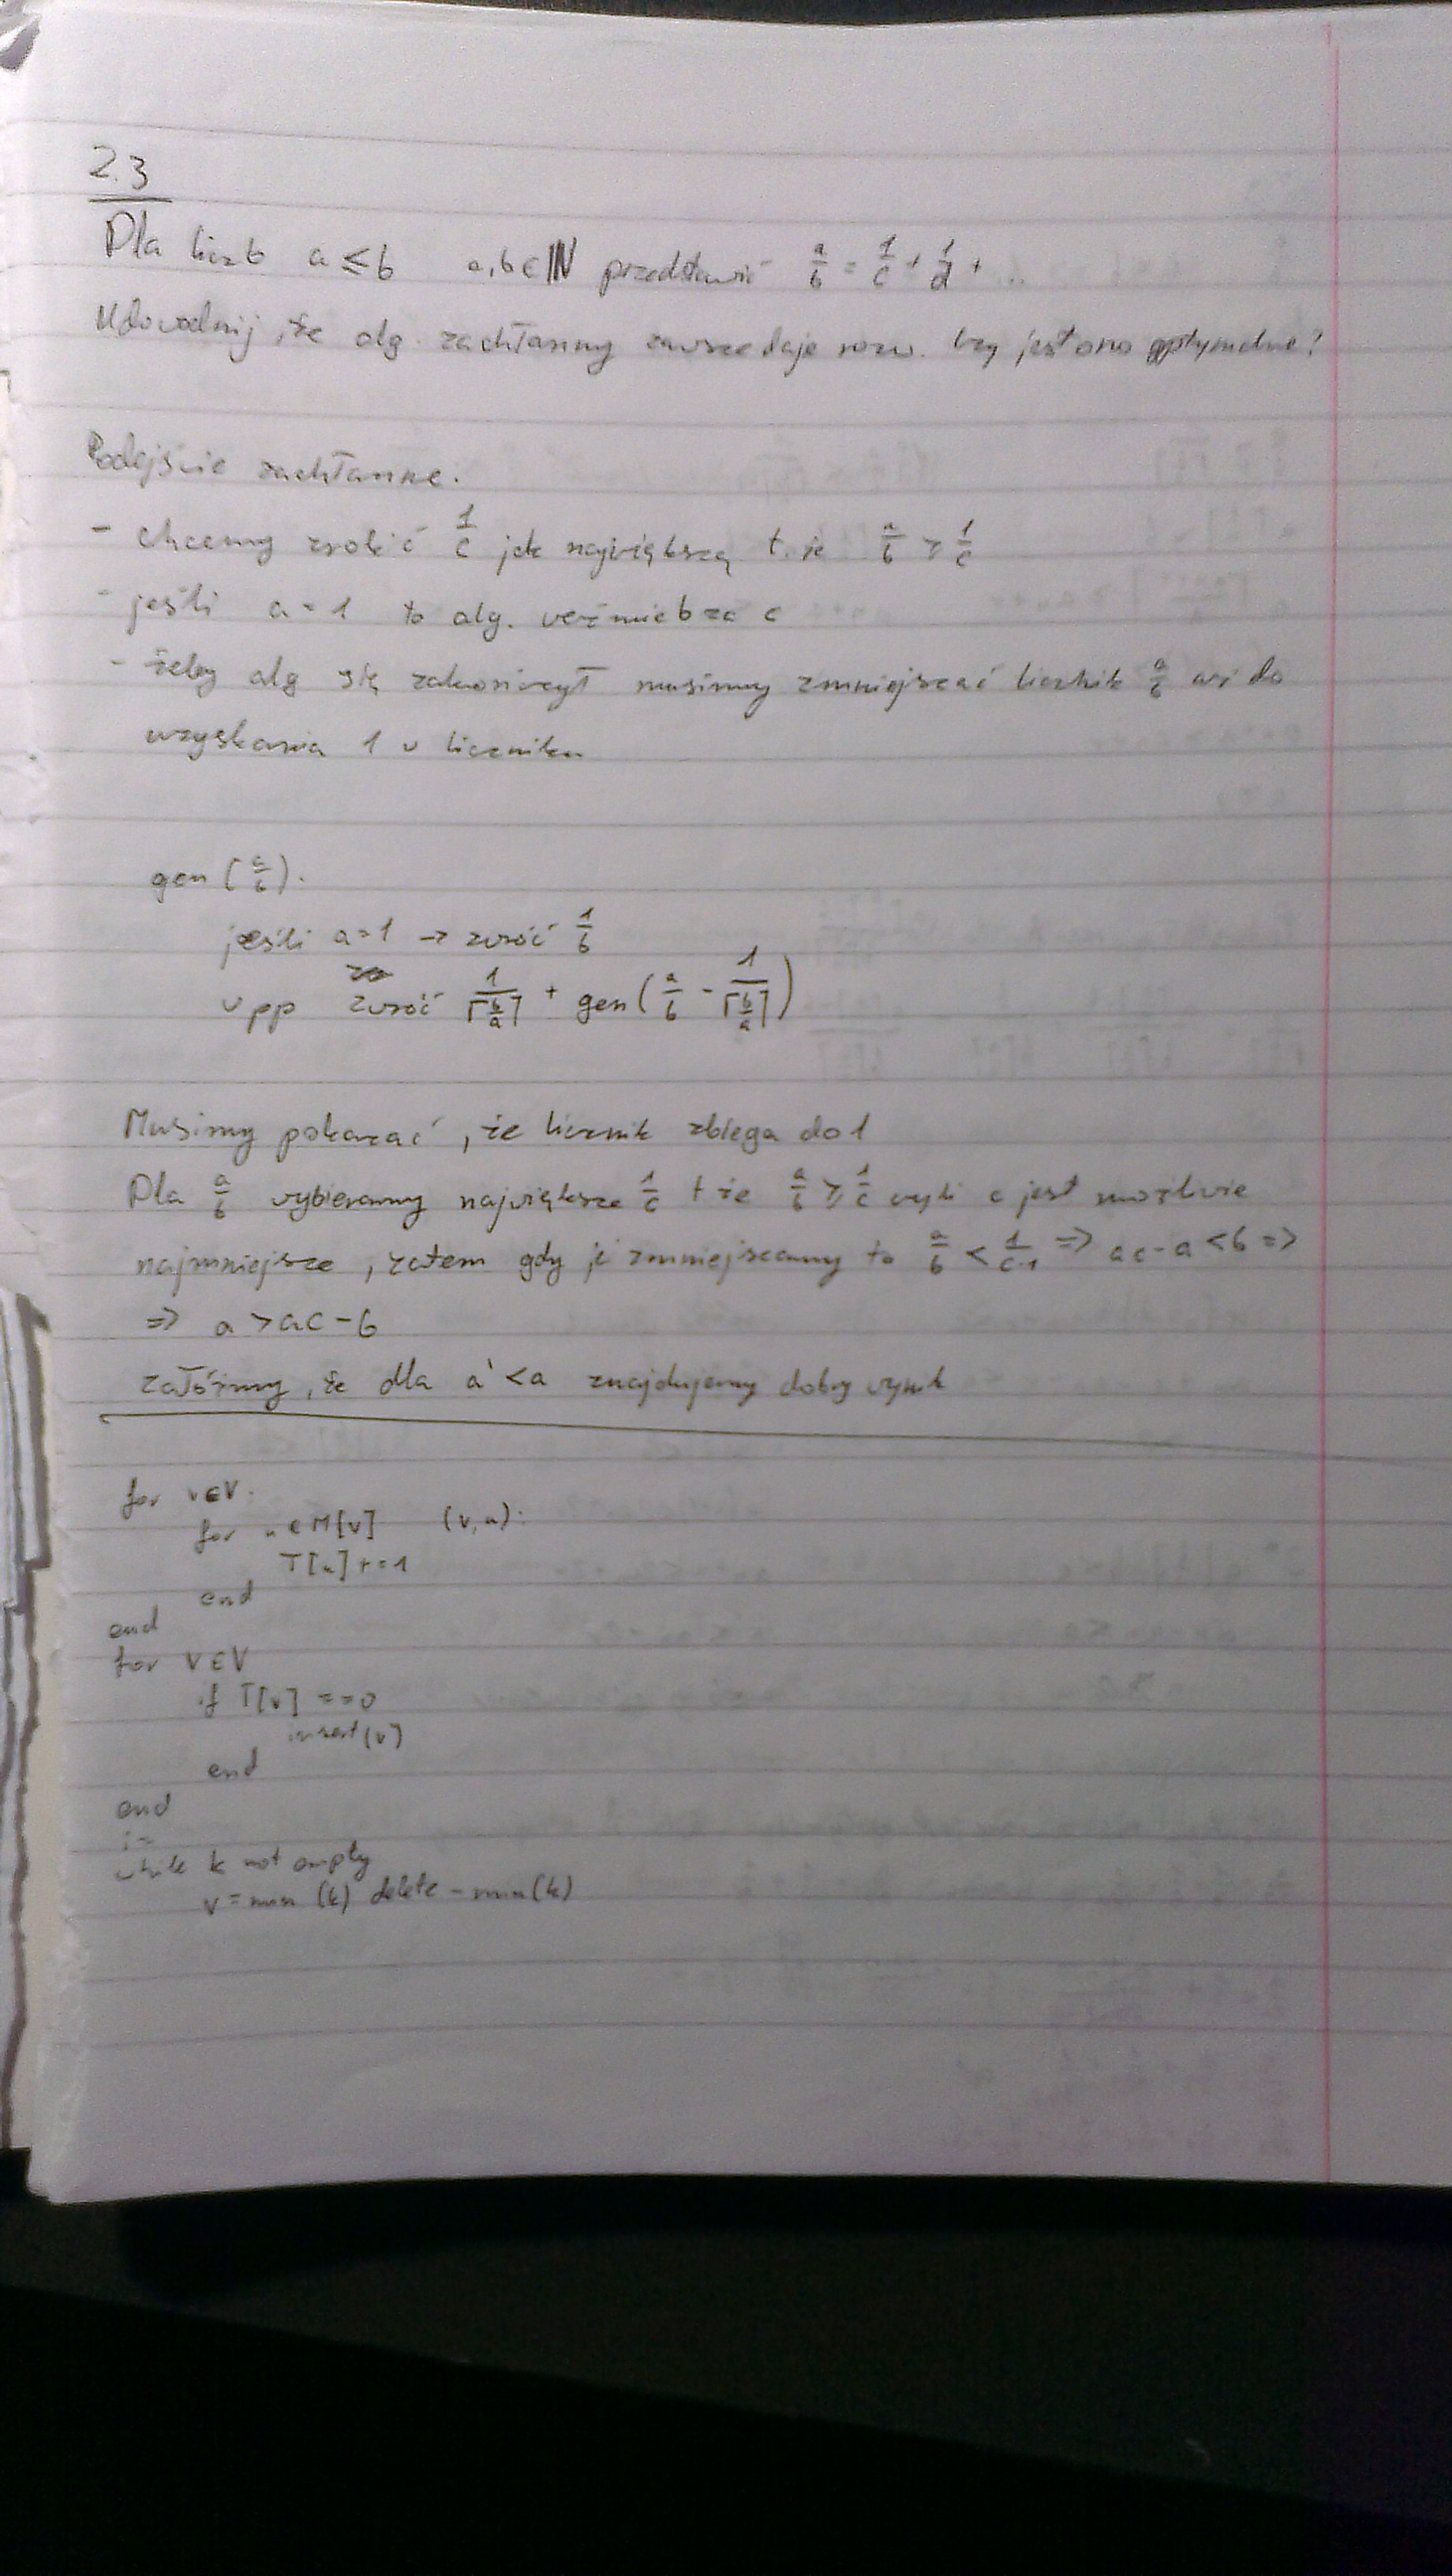 2.3
Dla liczb a ≤ b a,b ∈ ℕ przedstawić a/b = 1/c + 1/d + ...
Udowodnij, że alg. zachłanny zawsze daje rozw. Czy jest ono optymalne?
Podejście zachłanne.
- chcemy zrobić 1/c jak największą t. że a/b ≥ 1/c
- jeśli a=1 to alg. weźmie b za c
- żeby alg się zakończył musimy zmniejszać licznik a/b aż do
uzyskania 1 w liczniku
gen (a/b).
jeśli a=1 → zwróć 1/b
w pp zwróć 1/⌈b/a⌉ + gen(a/b - 1/⌈b/a⌉)
Musimy pokazać, że licznik zbiega do 1
Dla a/b wybieramy największe 1/c t że a/b ≥ 1/c czyli c jest możliwie
najmniejsze, zatem gdy je zmniejszamy to a/b < 1/c-1 => ac-a<b =>
=> a > ac - b
załóżmy, że dla a' < a znajdujemy dobry wynik
for v∈V.
for u ∈ M[v] (v,u):
T[u] += 1
end
end
for v∈V
if T[v] == 0
insert(v)
end
end
while k not empty
v = min (k) delete - min(k)